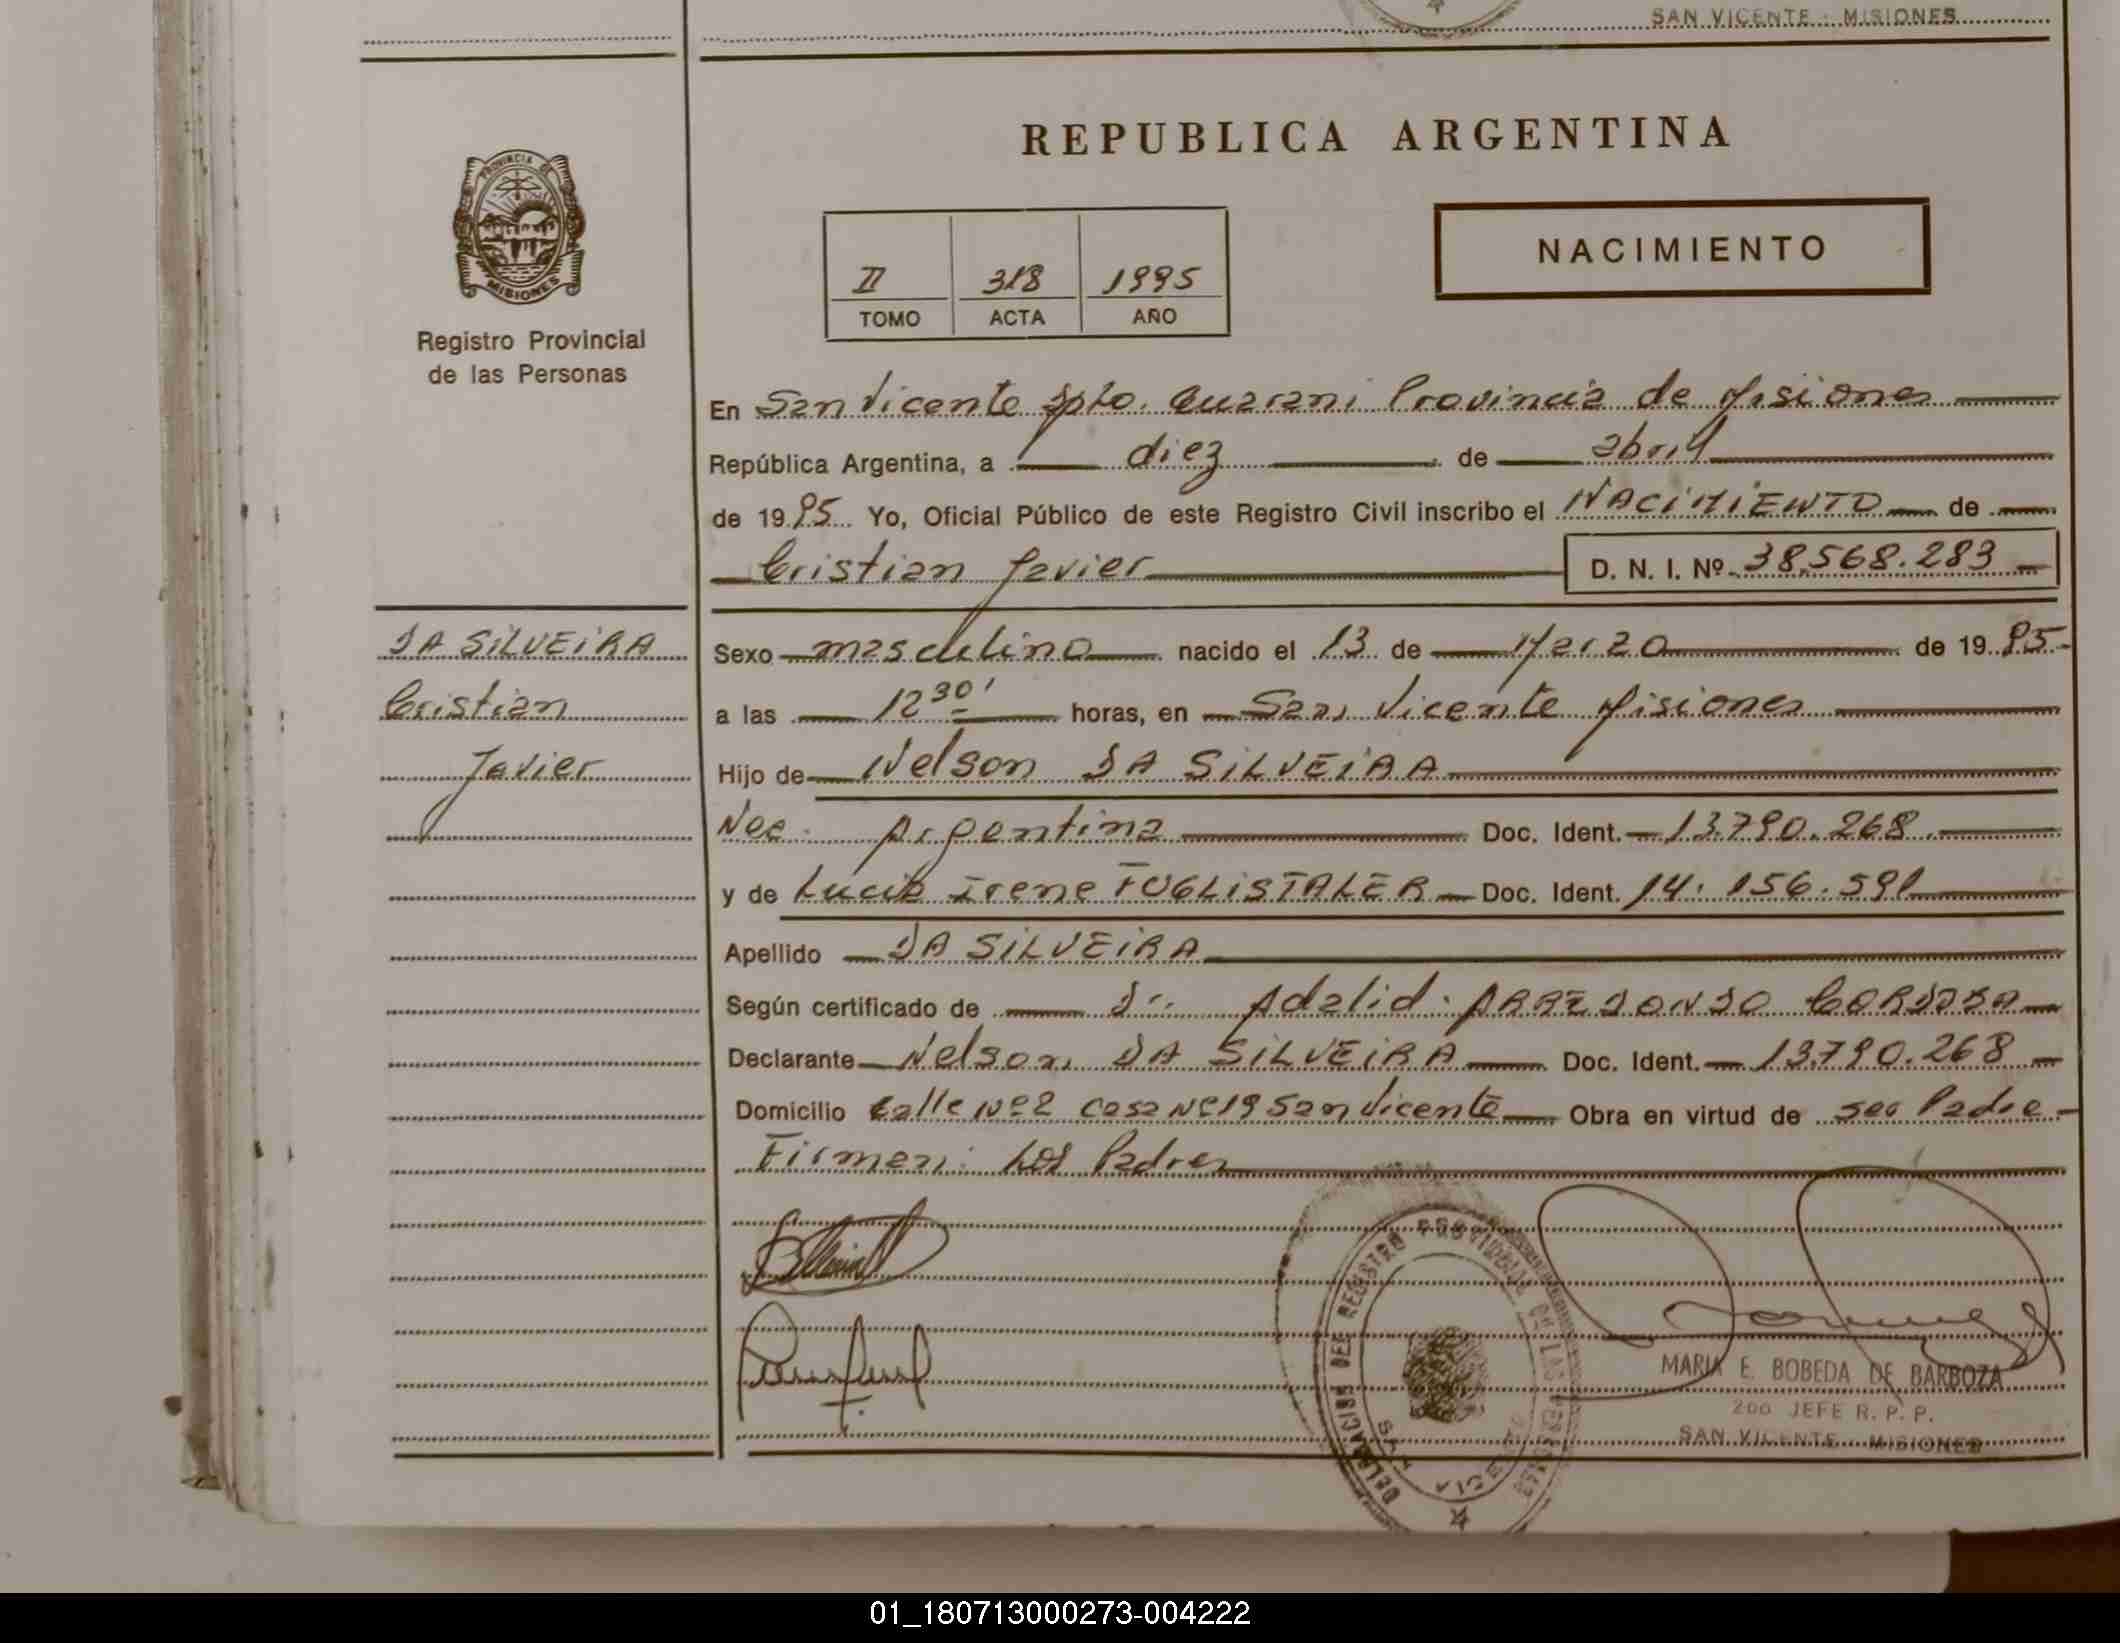 SAN VICENTE - MISIONES
REPUBLICA ARGENTINA
PROVINCIA DE
MISIONES
Registro Provincial
de las Personas
II 318 1995
TOMO ACTA AÑO
NACIMIENTO
En San Vicente Dpto. Guarani Provincia de Misiones
República Argentina, a diez de abril
de 1995 Yo, Oficial Público de este Registro Civil inscribo el NACIMIENTO de
Cristian Javier D. N. I. Nº 38.568.283
DA SILVEIRA
Cristian
Javier
Sexo masculino nacido el 13 de Marzo de 1995
a las 12 30' horas, en San Vicente Misiones
Hijo de Nelson DA SILVEIRA
Nac. Argentina Doc. Ident. 13.790.268
y de Lucia Irene FUGLISTALER Doc. Ident. 14.156.591
Apellido DA SILVEIRA
Según certificado de Dr. Adalid ARREDONDO CORDOBA
Declarante Nelson DA SILVEIRA Doc. Ident. 13.790.268
Domicilio calle Nº2 casa Nº19 San Vicente Obra en virtud de ser Padre
Firman: Los Padres
DELEGACION DEL REGISTRO PROVINCIAL DE LAS PERSONAS
SAN VICENTE
MARIA E. BOBEDA DE BARBOZA
2do JEFE R. P. P.
SAN VICENTE - MISIONES
01_180713000273-004222